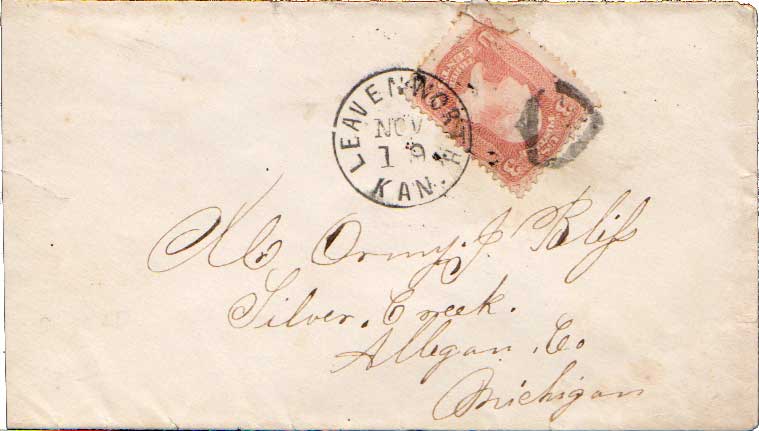 LEAVENWORTH
NOV
19
KAN.
Ormy. J. Bliss
Silver. Creek.
Allegan. Co
Michigan